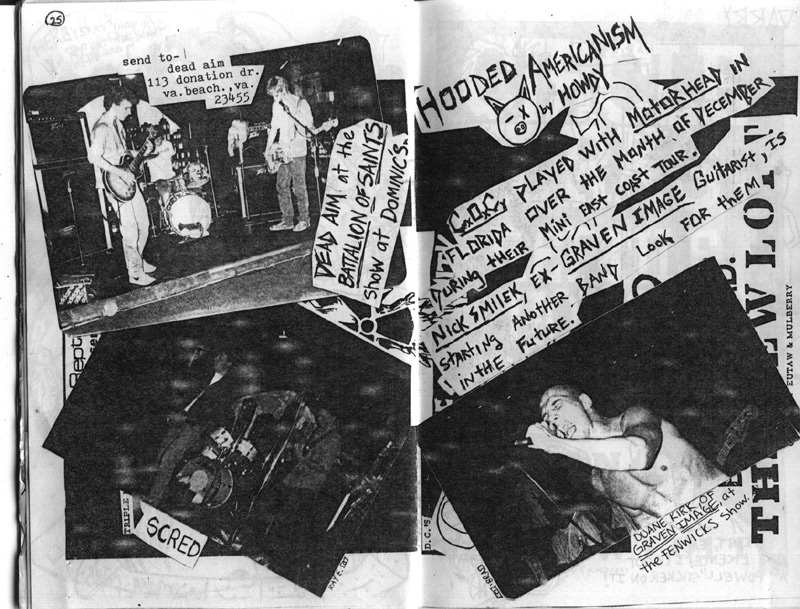 25
send to-
dead aim
113 donation dr.
va.beach.,va.
23455
DEAD AIM at the
BATTALION OF SAINTS
show at DOMINICS.
Sept
TRIPLE
SCRED
HOODED AMERICANISM
by HOWDY
C.O.C. PLAYED WITH MOTORHEAD IN
FLORIDA OVER THE MONTH OF DECEMBER
DURING THEIR MINI EAST COAST TOUR.
NICK SMILEK, EX-GRAVEN IMAGE GUITARIST, IS
STARTING ANOTHER BAND LOOK FOR THEM
IN THE FUTURE.
EUTAW & MULBERRY
D.C. 15
DUANE KIRK OF
GRAVEN IMAGE, at
the FENWICKS show.